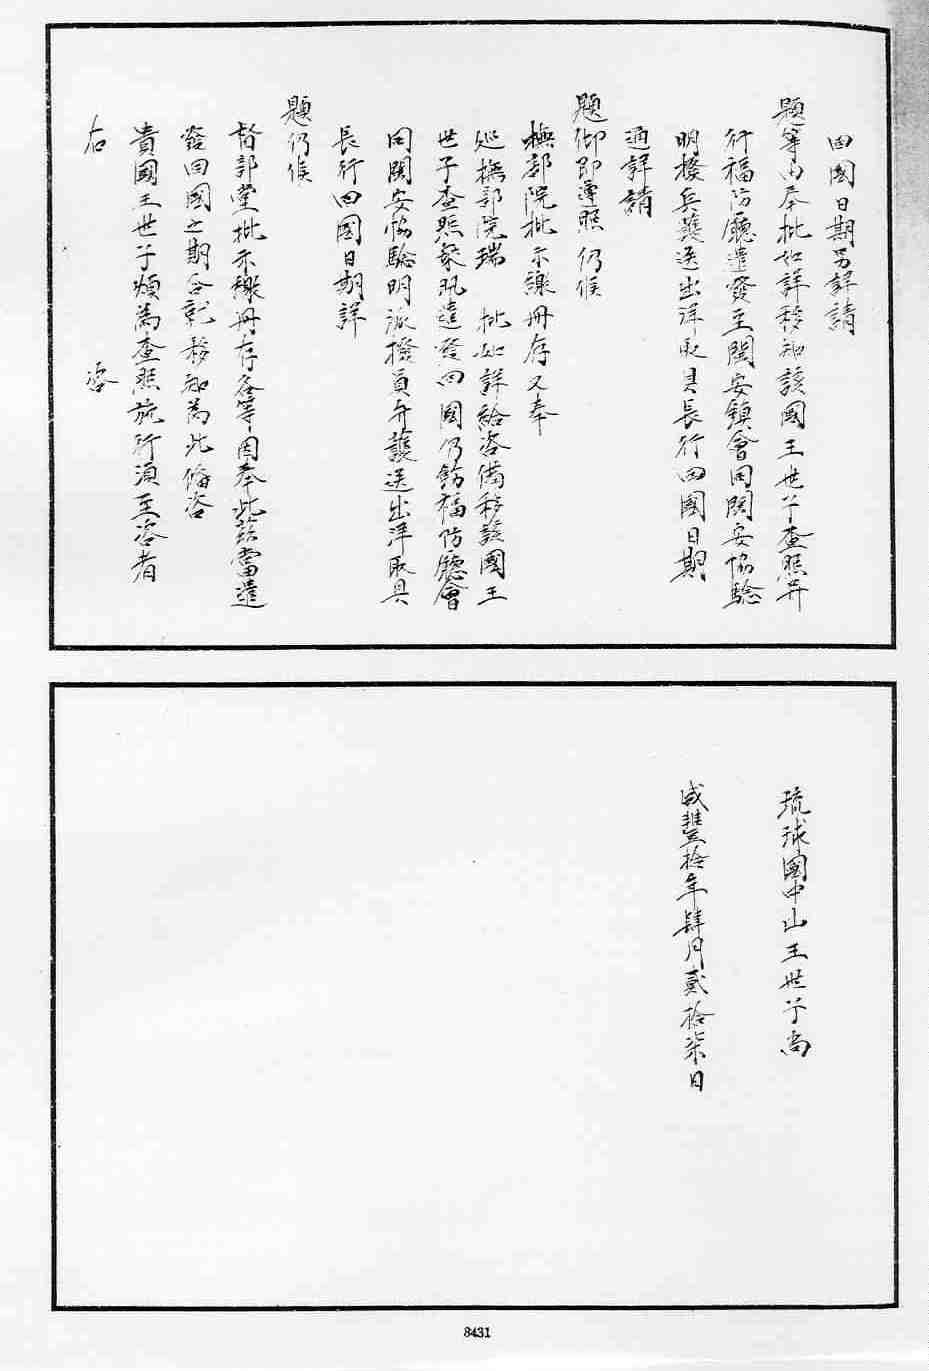 回國日期另詳請
題等由奉批如詳移知該國王世子查照并
行福防廳遣發至閩安鎮會同閩安協驗
明撥兵護送出洋取具長行回國日期
通詳請
題仰即遵照仍候
撫部院批示繳冊存又奉
巡撫部院瑞　批如詳給咨備移該國王
世子查照就遣發回國仍飭福防廳會
同閩安協驗明派撥員弁護送出洋取具
長行回國日期詳
題仍候
督部堂批示繳冊存各等因奉此茲當遣
發回國之期合就移知為此備咨
貴國王世子煩為查照施行須至咨者
右　咨
琉球國中山王世子尚
咸豐拾年肆月貳拾柒日
8431